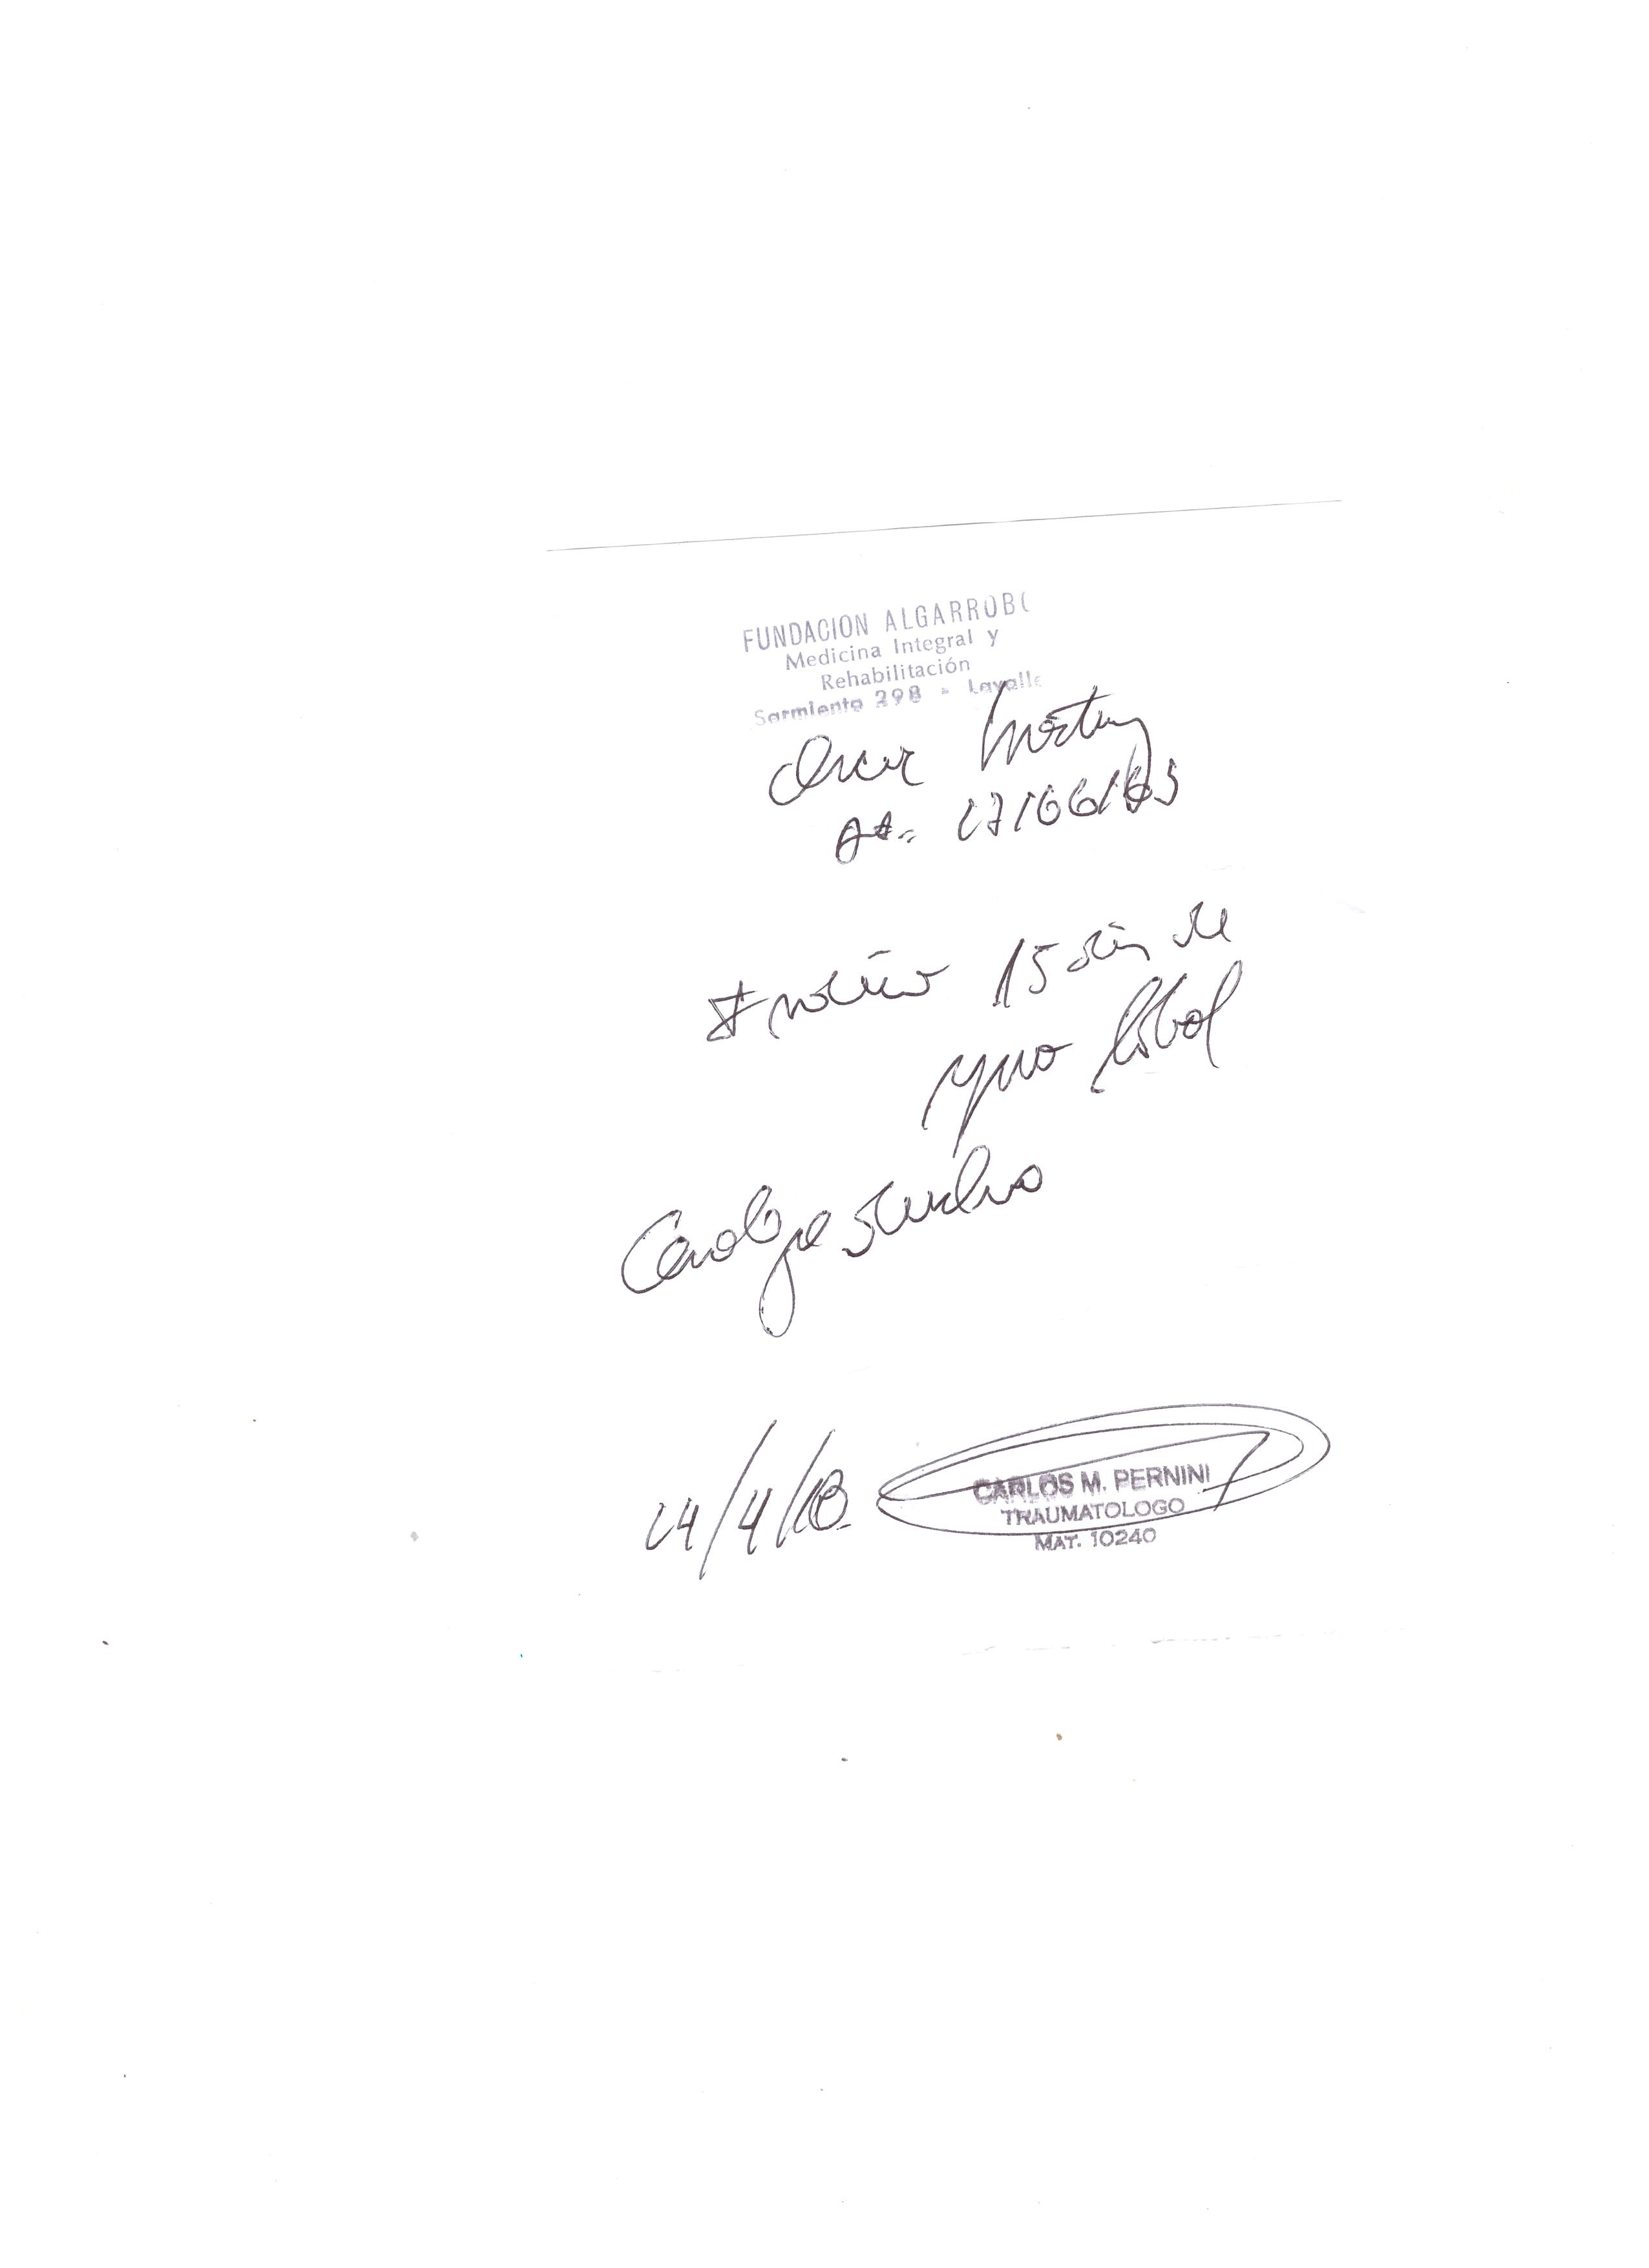 FUNDACION ALGARROBO
Medicina Integral y
Rehabilitación
Sarmiento 298 - Lavalle
Oscar Martinez
17166165
15 días de
reposo laboral
14/4/18
CARLOS M. PERNINI
TRAUMATOLOGO
MAT. 10240